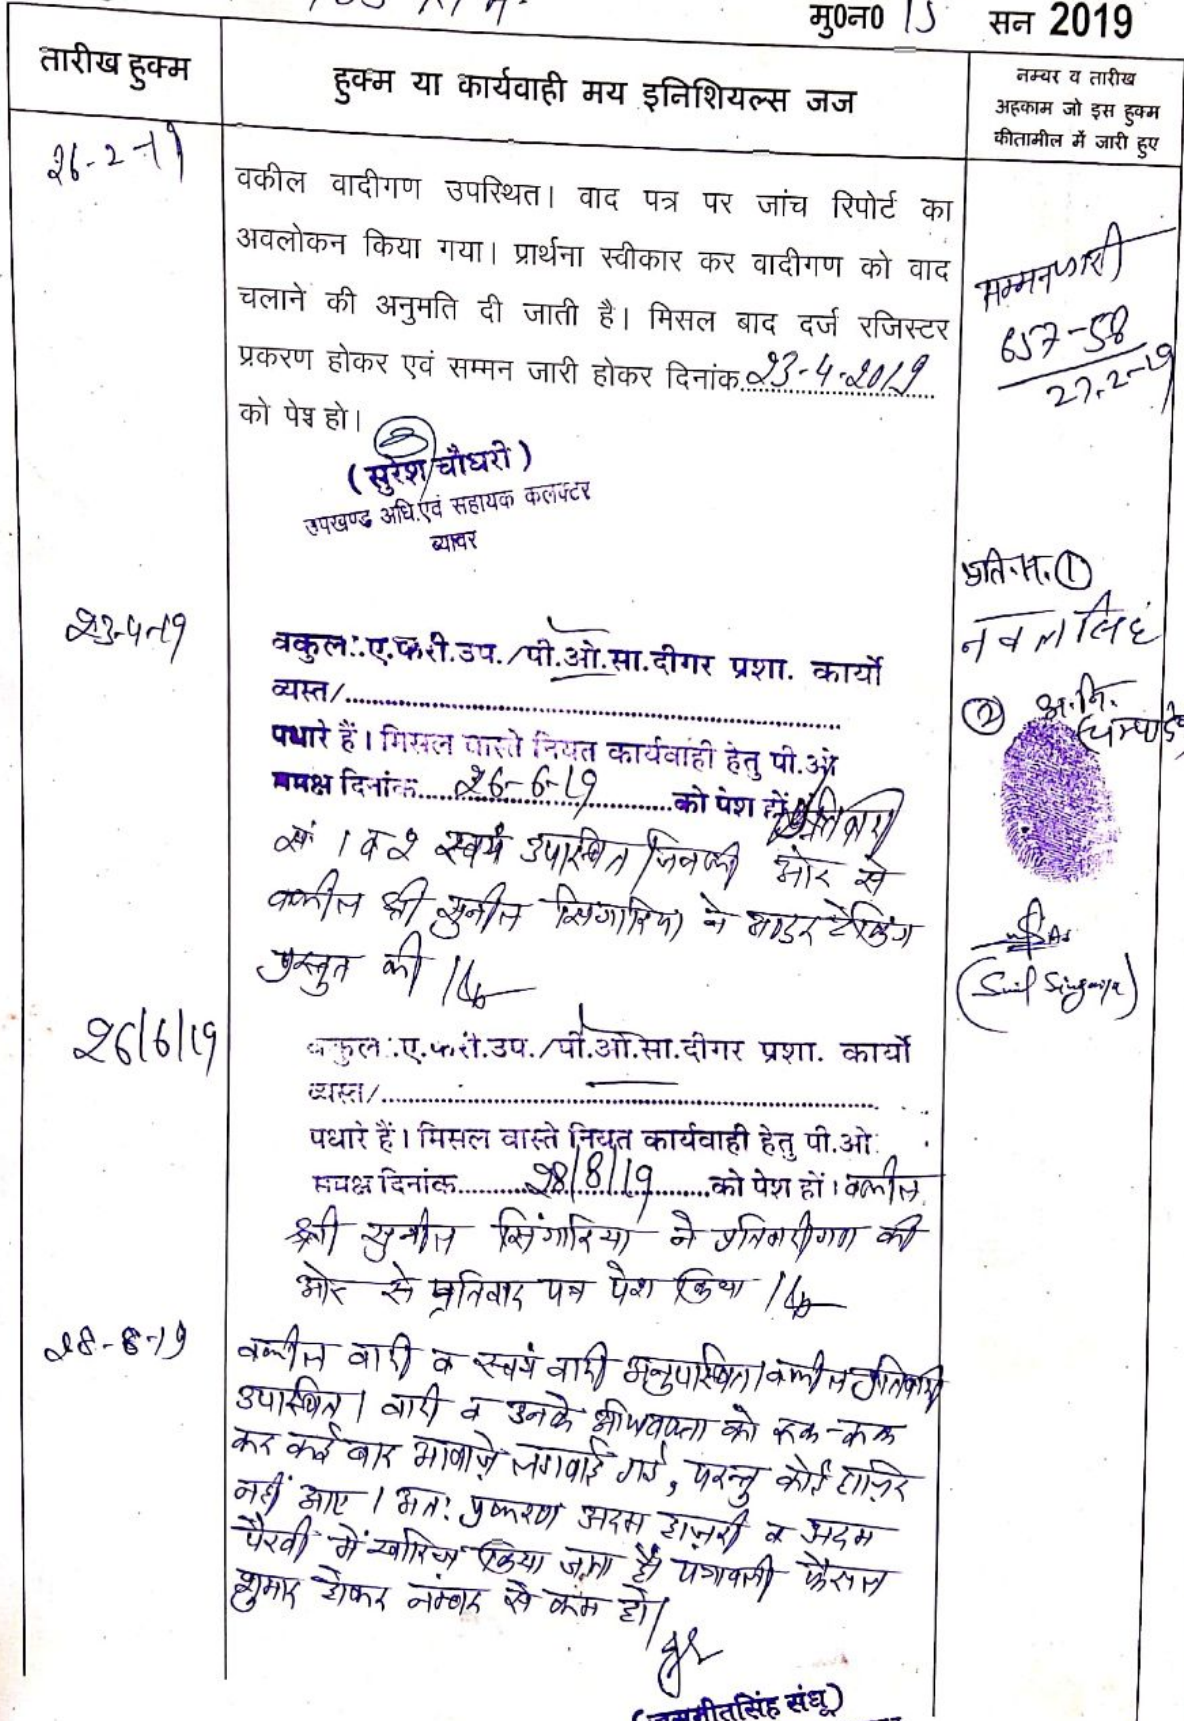 मु०न० 15 सन 2019
तारीख हुक्म
हुक्म या कार्यवाही मय इनिशियल्स जज
नम्बर व तारीख
अहकाम जो इस हुक्म
कीतामील में जारी हुए
26-2-19
वकील वादीगण उपस्थित। वाद पत्र पर जांच रिपोर्ट का
अवलोकन किया गया। प्रार्थना स्वीकार कर वादीगण को वाद
चलाने की अनुमति दी जाती है। मिसल बाद दर्ज रजिस्टर
प्रकरण होकर एवं सम्मन जारी होकर दिनांक 23-4-2019
को पेश हो।
सम्मन जारी
657-58
27.2-19
(सुरेश चौधरी)
उपखण्ड अधि.एवं सहायक कलक्टर
ब्यावर
23-4-19
वकुल:.ए.फरी.उप./पी.ओ.सा.दीगर प्रशा. कार्यो
व्यस्त/
पधारे हैं। मिसल वास्ते नियत कार्यवाही हेतु पी.ओ
समक्ष दिनांक 26-6-19 को पेश हों। प्रतिवादी
सं. 1 व 2 स्वयं उपस्थित जिनकी ओर से
वकील श्री सुनील सिंगारिया ने अण्डर टेकिंग
प्रस्तुत की।
प्रति.सं. ①
नवलसिंह
② अ.नि.
(Sunil Singariya)
26/6/19
वकुल:.ए.फरी.उप./पी.ओ.सा.दीगर प्रशा. कार्यो
व्यस्त/
पधारे हैं। मिसल वास्ते नियत कार्यवाही हेतु पी.ओ.
समक्ष दिनांक 28/8/19 को पेश हों। वकील
श्री सुनील सिंगारिया ने प्रतिवादीगण की
ओर से प्रतिवाद पत्र पेश किया।
28-8-19
वकील वादी व स्वयं वादी अनुपस्थित। वकील प्रतिवादी
उपस्थित। वादी व उनके अभिवक्ता को रूक-रूक
कर कई बार आवाज़े लगवाई गई, परन्तु कोई हाज़िर
नहीं आए। अत: प्रकरण अदम हाज़री व अदम
पैरवी में खारिज किया जाता है। पत्रावली फैसल
शुमार होकर नम्बर से कम हो।
(जसमीतसिंह संधू)